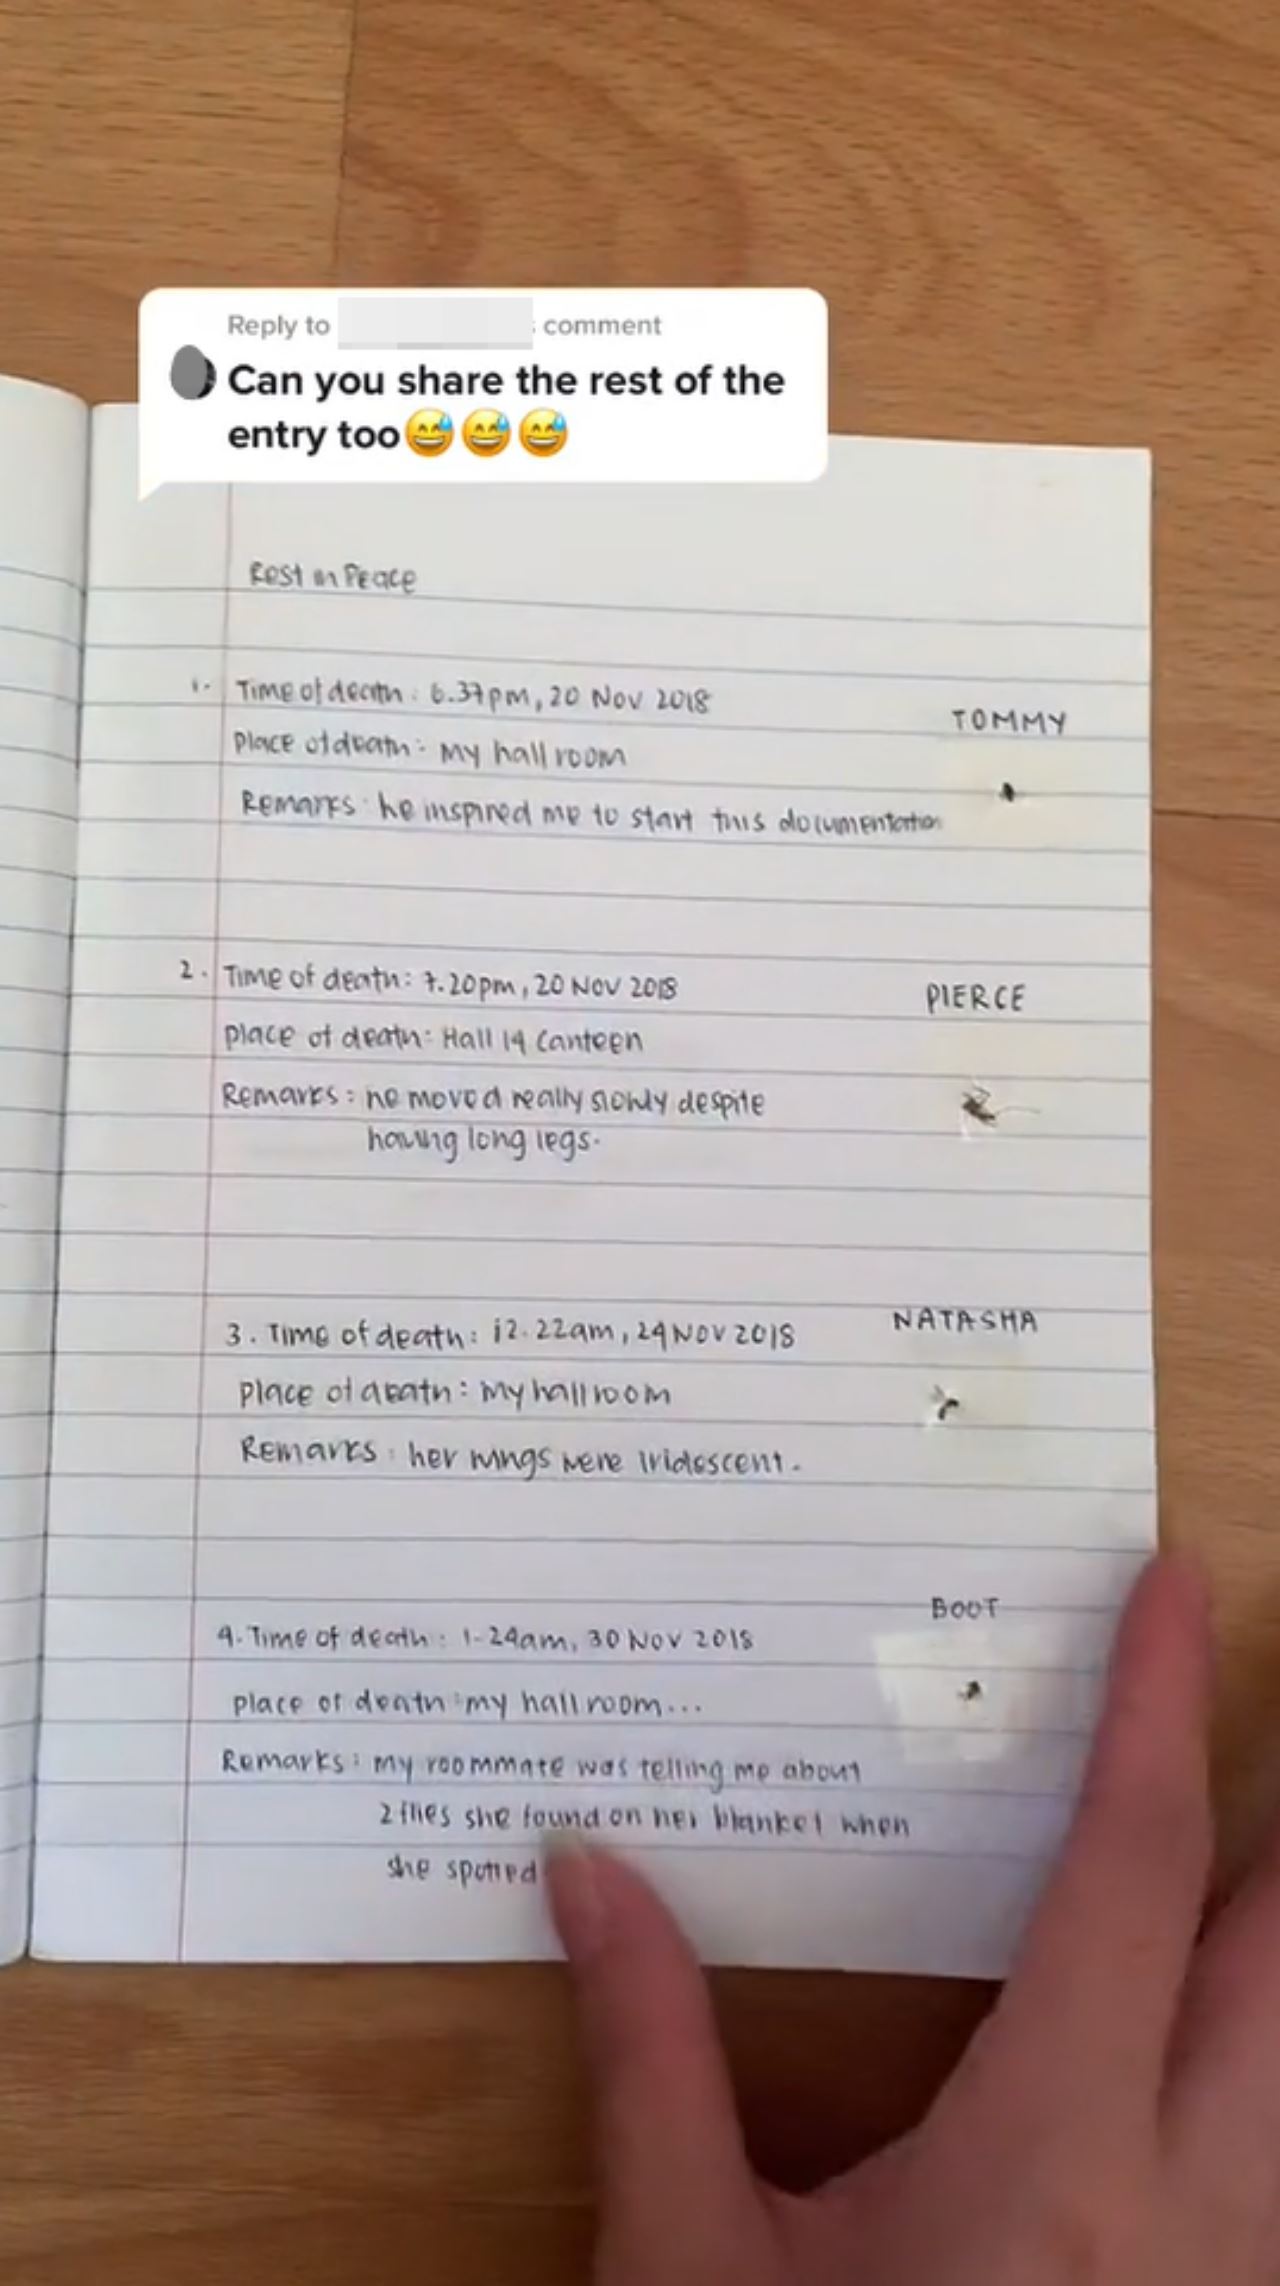 Reply to comment
Can you share the rest of the
entry too😅😅😅
Rest in Peace
1. Time of death: 6.37pm, 20 Nov 2018
TOMMY
Place of death: my hall room
Remarks: he inspired me to start this documentation
2. Time of death: 7.20pm, 20 Nov 2018
PIERCE
Place of death: Hall 14 Canteen
Remarks: he moved really slowly despite
having long legs.
NATASHA
3. Time of death: 12.22am, 24 Nov 2018
Place of death: my hall room
Remarks: her wings were iridescent.
BOOT
4. Time of death: 1.24am, 30 Nov 2018
place of death: my hall room...
Remarks: my roommate was telling me about
2 flies she found on her blanket when
she spotted